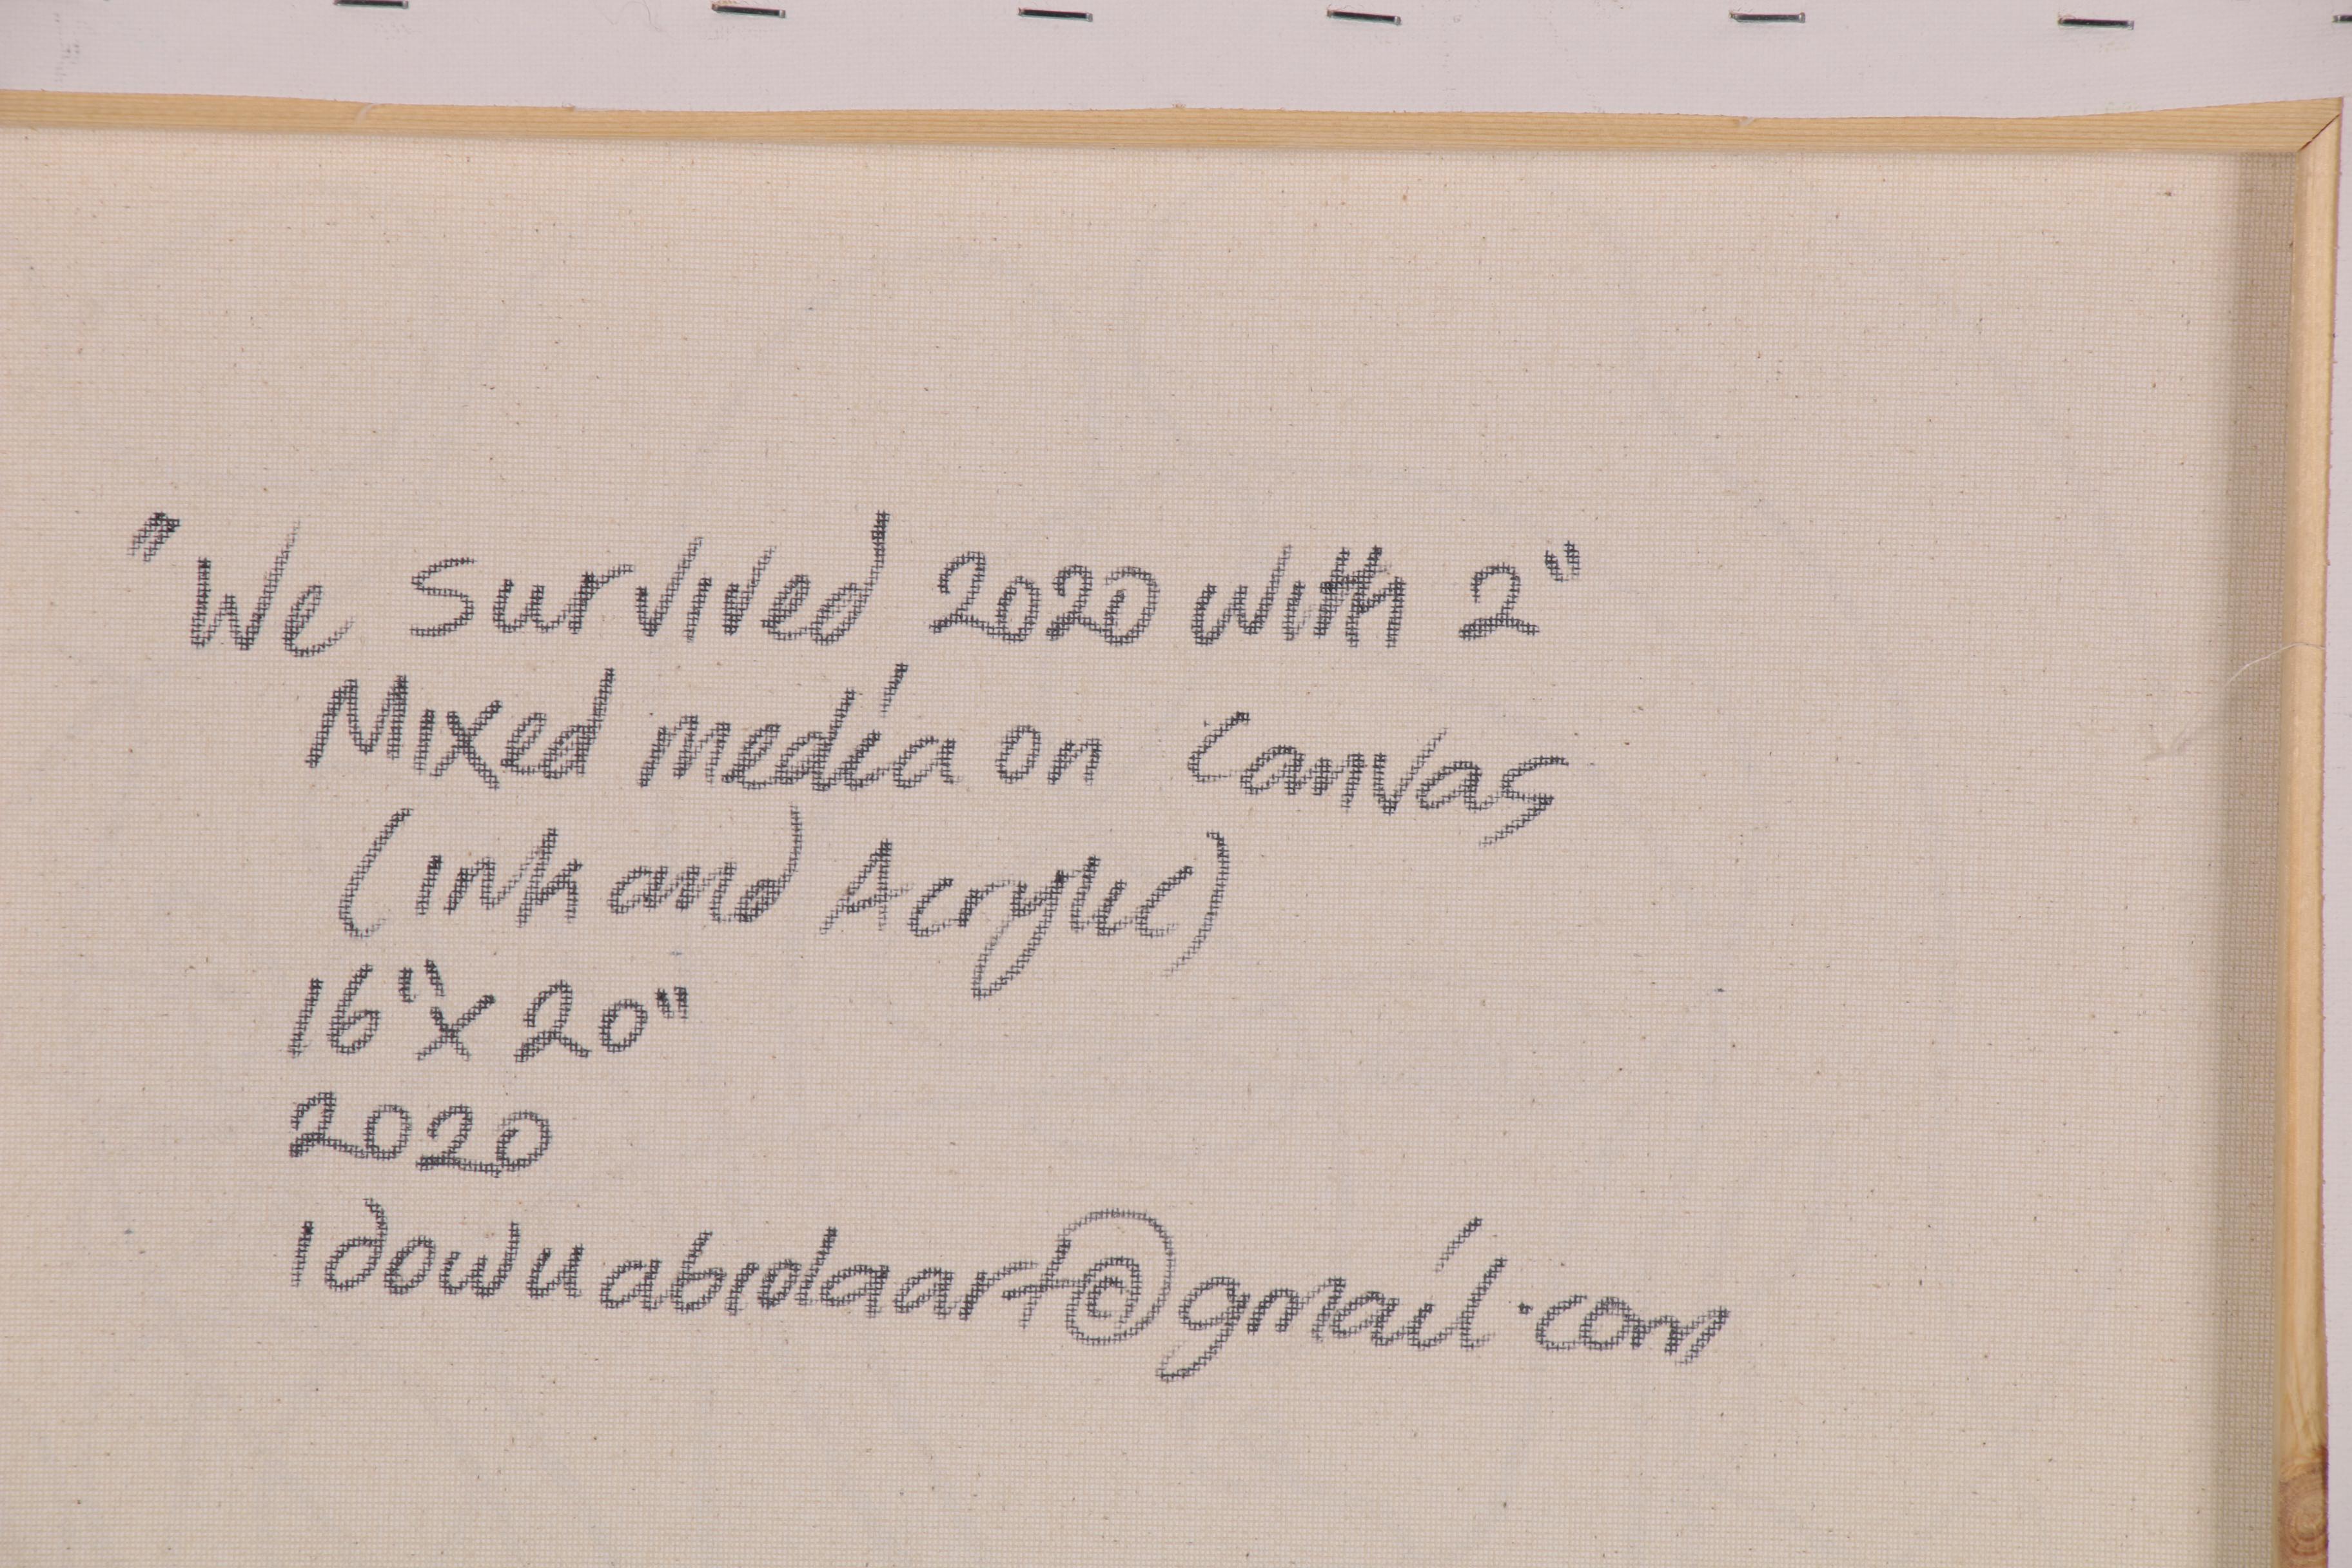 "We Survived 2020 with 2"
Mixed media on Canvas
(ink and Acrylic)
16" X 20"
2020